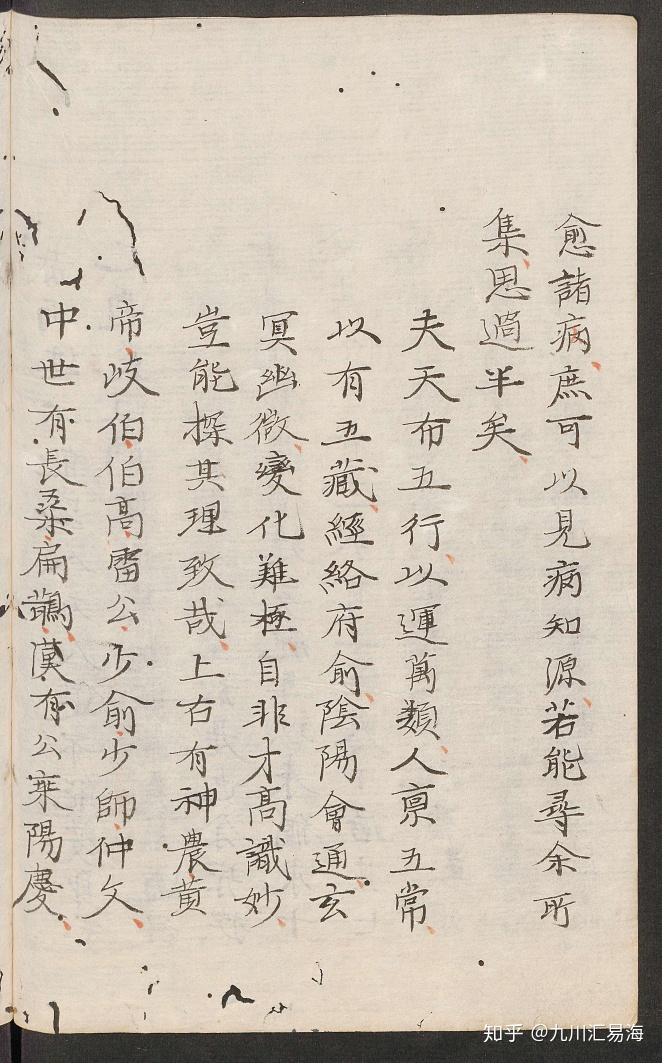 愈諸病庶可以見病知源若能尋余所
集思過半矣
夫天布五行以運萬類人稟五常
以有五藏經絡府俞陰陽會通玄
冥幽微變化難極自非才高識妙
豈能探其理致哉上古有神農黃
帝岐伯伯高雷公少俞少師仲文
中世有長桑扁鵲漢有公乘陽慶
知乎 @九川汇易海